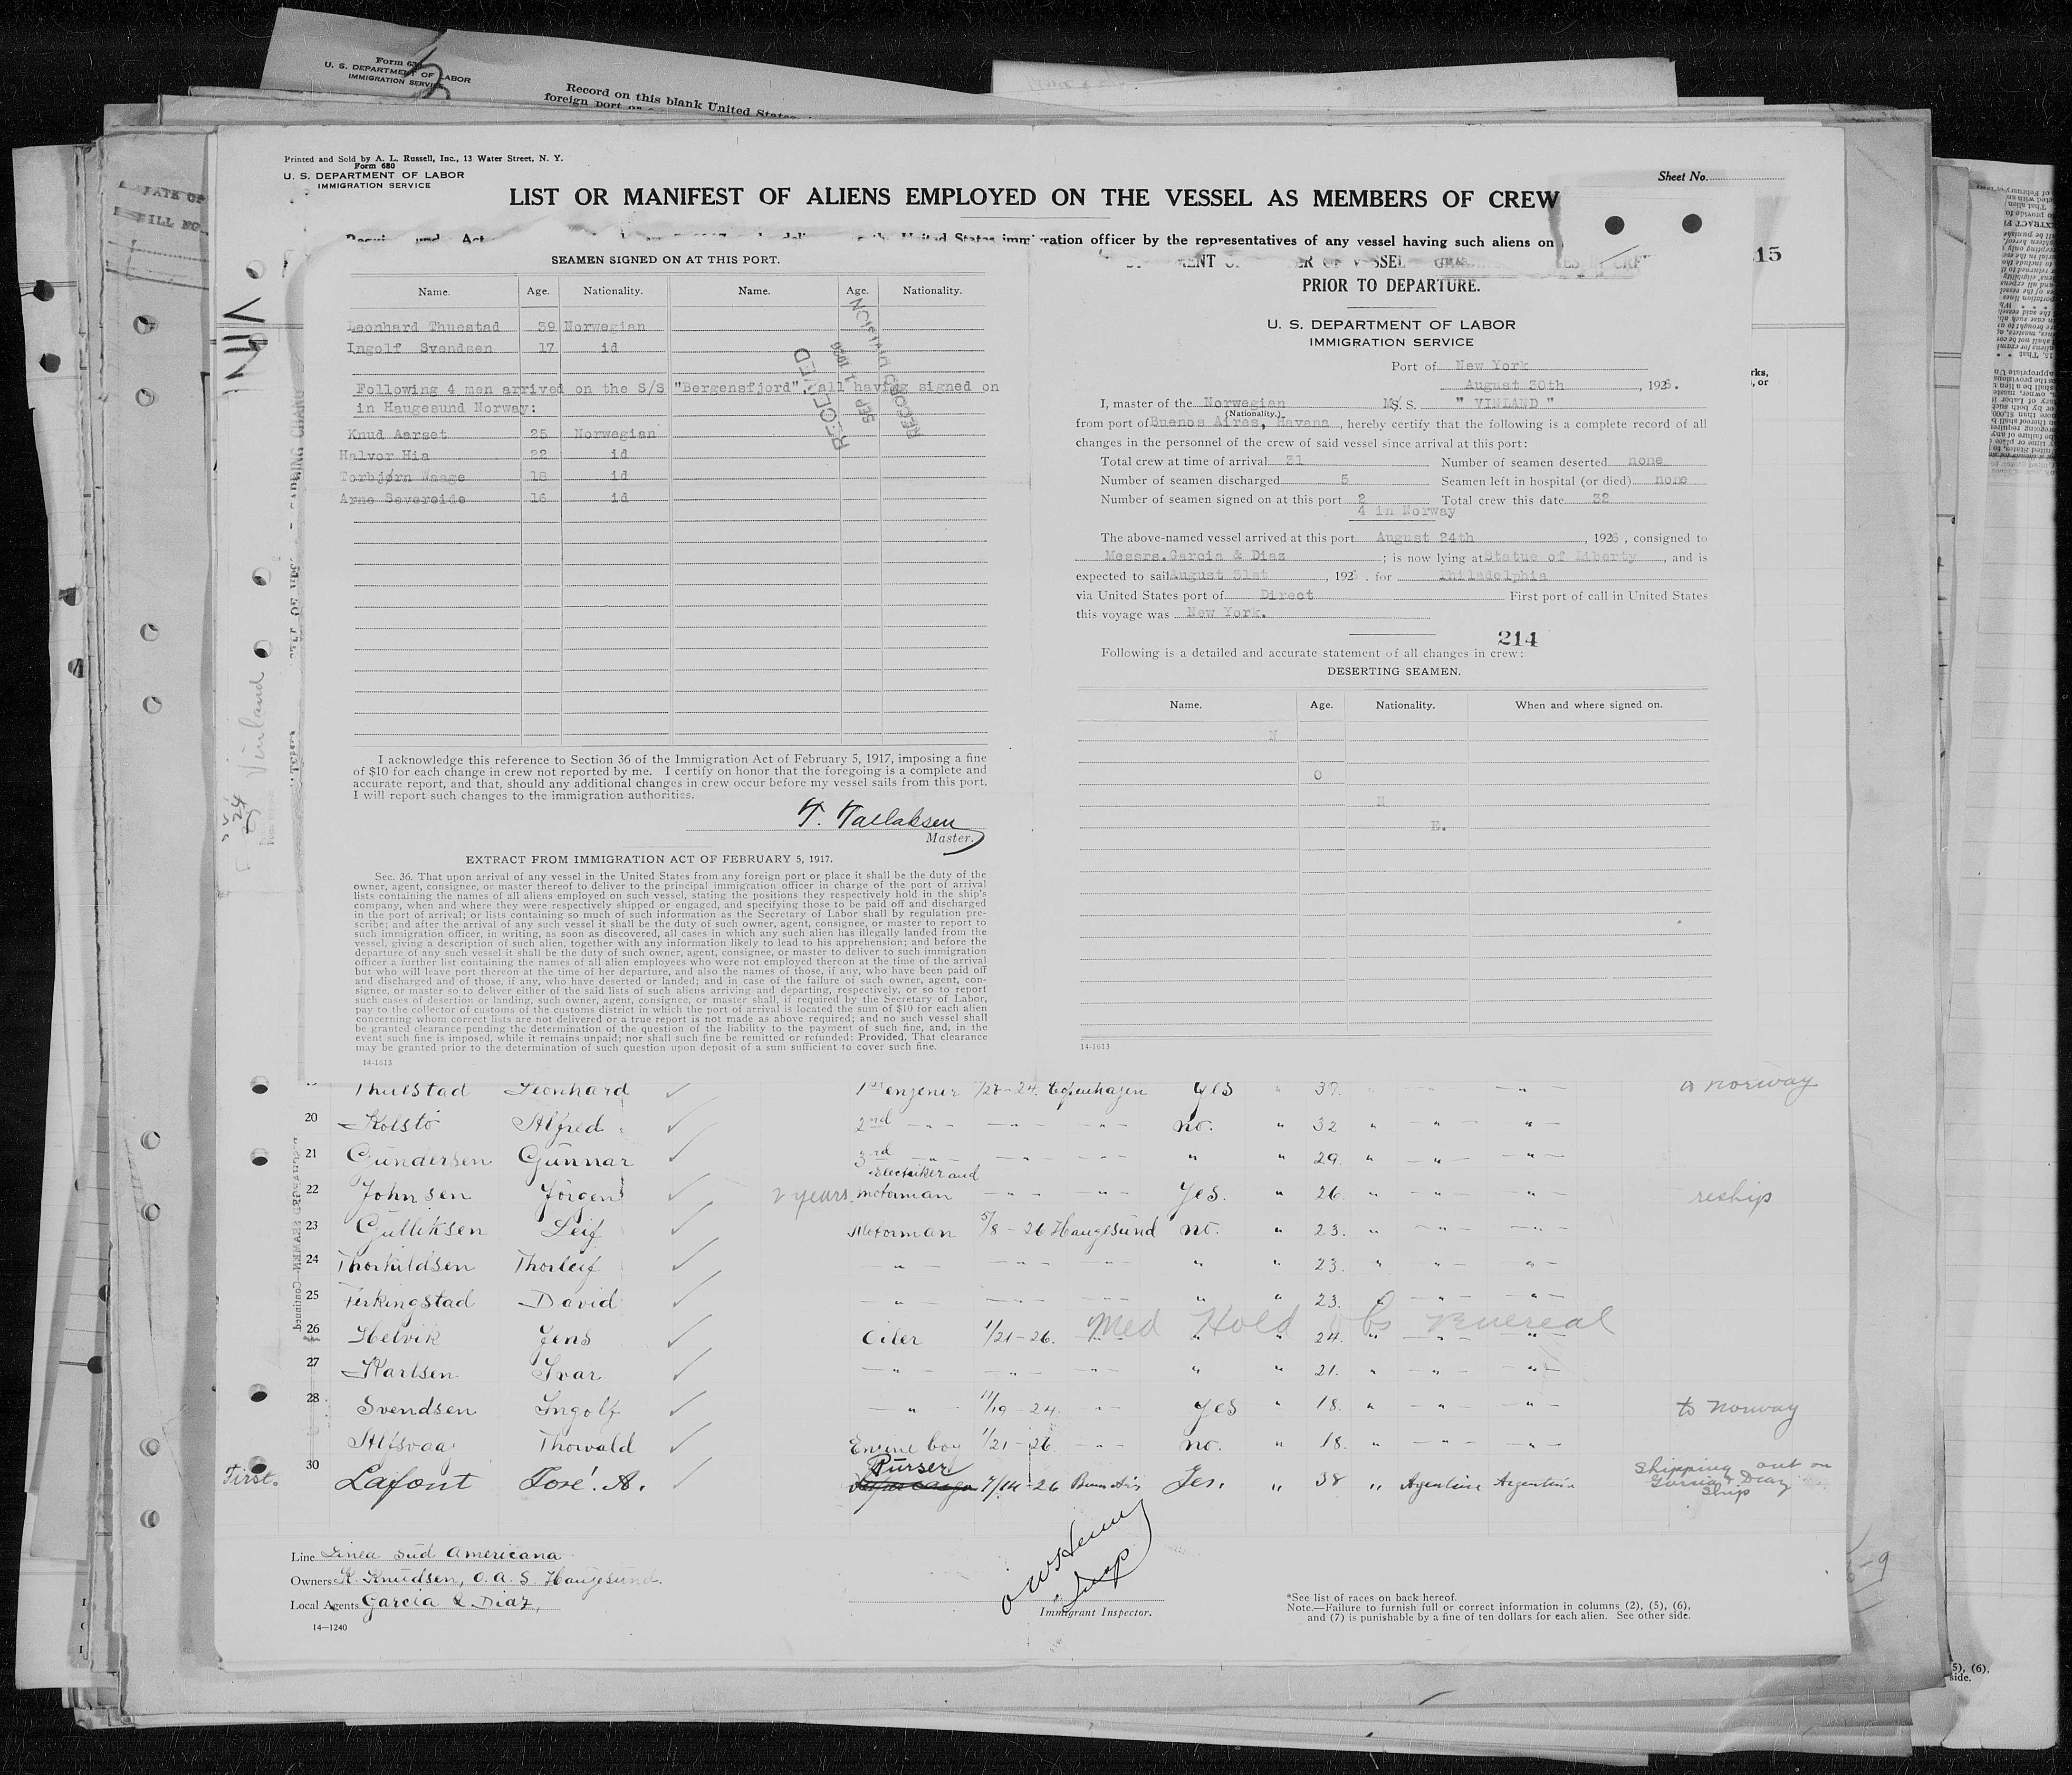 Form 680
U. S. DEPARTMENT OF LABOR
IMMIGRATION SERVICE
Record on this blank United States
foreign port or
Printed and Sold by A. L. Russell, Inc., 13 Water Street, N. Y.
Form 680
U. S. DEPARTMENT OF LABOR
IMMIGRATION SERVICE
Sheet No.
LIST OR MANIFEST OF ALIENS EMPLOYED ON THE VESSEL AS MEMBERS OF CREW
United States immigration officer by the representatives of any vessel having such aliens on
SEAMEN SIGNED ON AT THIS PORT.
Name. Age. Nationality. Name. Age. Nationality.
Leonhard Thuestad 39 Norwegian
Ingolf Svendsen 17 id
Following 4 men arrived on the S/S "Bergensfjord", all having signed on
in Haugesund Norway:
Knud Aarset 25 Norwegian
Halvor Hia 22 id
Torbjørn Waage 18 id
Arne Severeide 16 id
RECEIVED
SEP 1 1926
RECORD DIVISION
I acknowledge this reference to Section 36 of the Immigration Act of February 5, 1917, imposing a fine
of $10 for each change in crew not reported by me. I certify on honor that the foregoing is a complete and
accurate report, and that, should any additional changes in crew occur before my vessel sails from this port,
I will report such changes to the immigration authorities.
T. Tallaksen
Master.
EXTRACT FROM IMMIGRATION ACT OF FEBRUARY 5, 1917.
Sec. 36. That upon arrival of any vessel in the United States from any foreign port or place it shall be the duty of the
owner, agent, consignee, or master thereof to deliver to the principal immigration officer in charge of the port of arrival
lists containing the names of all aliens employed on such vessel, stating the positions they respectively hold in the ship's
company, when and where they were respectively shipped or engaged, and specifying those to be paid off and discharged
in the port of arrival; or lists containing so much of such information as the Secretary of Labor shall by regulation pre-
scribe; and after the arrival of any such vessel it shall be the duty of such owner, agent, consignee, or master to report to
such immigration officer, in writing, as soon as discovered, all cases in which any such alien has illegally landed from the
vessel, giving a description of such alien, together with any information likely to lead to his apprehension; and before the
departure of any such vessel it shall be the duty of such owner, agent, consignee, or master to deliver to such immigration
officer a further list containing the names of all alien employees who were not employed thereon at the time of the arrival
but who will leave port thereon at the time of her departure, and also the names of those, if any, who have been paid off
and discharged and of those, if any, who have deserted or landed; and in case of the failure of such owner, agent, con-
signee, or master so to deliver either of the said lists of such aliens arriving and departing, respectively, or so to report
such cases of desertion or landing, such owner, agent, consignee, or master shall, if required by the Secretary of Labor,
pay to the collector of customs of the customs district in which the port of arrival is located the sum of $10 for each alien
concerning whom correct lists are not delivered or a true report is not made as above required; and no such vessel shall
be granted clearance pending the determination of the question of the liability to the payment of such fine, and, in the
event such fine is imposed, while it remains unpaid; nor shall such fine be remitted or refunded: Provided, That clearance
may be granted prior to the determination of such question upon deposit of a sum sufficient to cover such fine.
14-1613
PRIOR TO DEPARTURE.
U. S. DEPARTMENT OF LABOR
IMMIGRATION SERVICE
Port of New York
August 30th, 1926.
I, master of the Norwegian M/S. S. " VINLAND "
(Nationality.)
from port of Buenos Aires, Havana, hereby certify that the following is a complete record of all
changes in the personnel of the crew of said vessel since arrival at this port:
Total crew at time of arrival 31 Number of seamen deserted none
Number of seamen discharged 5 Seamen left in hospital (or died) none
Number of seamen signed on at this port 2 Total crew this date 32
4 in Norway
The above-named vessel arrived at this port August 24th, 1926, consigned to
Messrs. Garcia & Diaz; is now lying at Statue of Liberty, and is
expected to sail August 31st, 192 . for Philadelphia
via United States port of Direct First port of call in United States
this voyage was New York.
214
Following is a detailed and accurate statement of all changes in crew:
DESERTING SEAMEN.
Name. Age. Nationality. When and where signed on.
N
O
N
E.
14-1613
15
Vinland
Thuestad Leonhard ✓ 1st engener 1/28-24. Copenhagen Yes " 37. to norway
20 Kolstö Alfred ✓ 2nd -"- -"- -"- no. " 32 " -"- -"-
21 Gundersen Gunnar ✓ 3rd -"- -"- -"- " " 29. " -"- -"-
22 Johnsen Jörgen ✓ 2 years. Electriker and motorman -"- -"- Yes. " 26. " -"- -"- reship
23 Gulliksen Leif ✓ Motorman 5/8-26 Haugesund no. " 23. " -"- -"-
24 Thorkildsen Thorleif ✓ -"- -"- -"- " " 23. " -"- -"-
25 Ferkingstad David ✓ -"- -"- -"- " " 23. " -"- -"-
26 Helvik Jens ✓ Oiler 1/21-26. " 24. " -"- -"-
Med Hold Obs Venereal
27 Karlsen Ivar ✓ -"- -"- -"- " " 21. " -"- -"-
28 Svendsen Ingolf ✓ -"- 11/19-24. -"- Yes " 18. " -"- -"- to norway
Alfsvaag Thorvald ✓ Engine boy 1/21-26 -"- no. " 18. " -"- -"-
30 First. Lafont José A. ✓ Purser 7/14-26 Buenos Airs Yes. " 38 " Argentine Argentine Shipping out on Garcia & Diaz Ship
Line Linea Sud Americana
Owners K. Knudsen, O. A. S. Haugesund.
Local Agents Garcia & Diaz,
14-1240
Immigrant Inspector.
*See list of races on back hereof.
Note.—Failure to furnish full or correct information in columns (2), (5), (6),
and (7) is punishable by a fine of ten dollars for each alien. See other side.